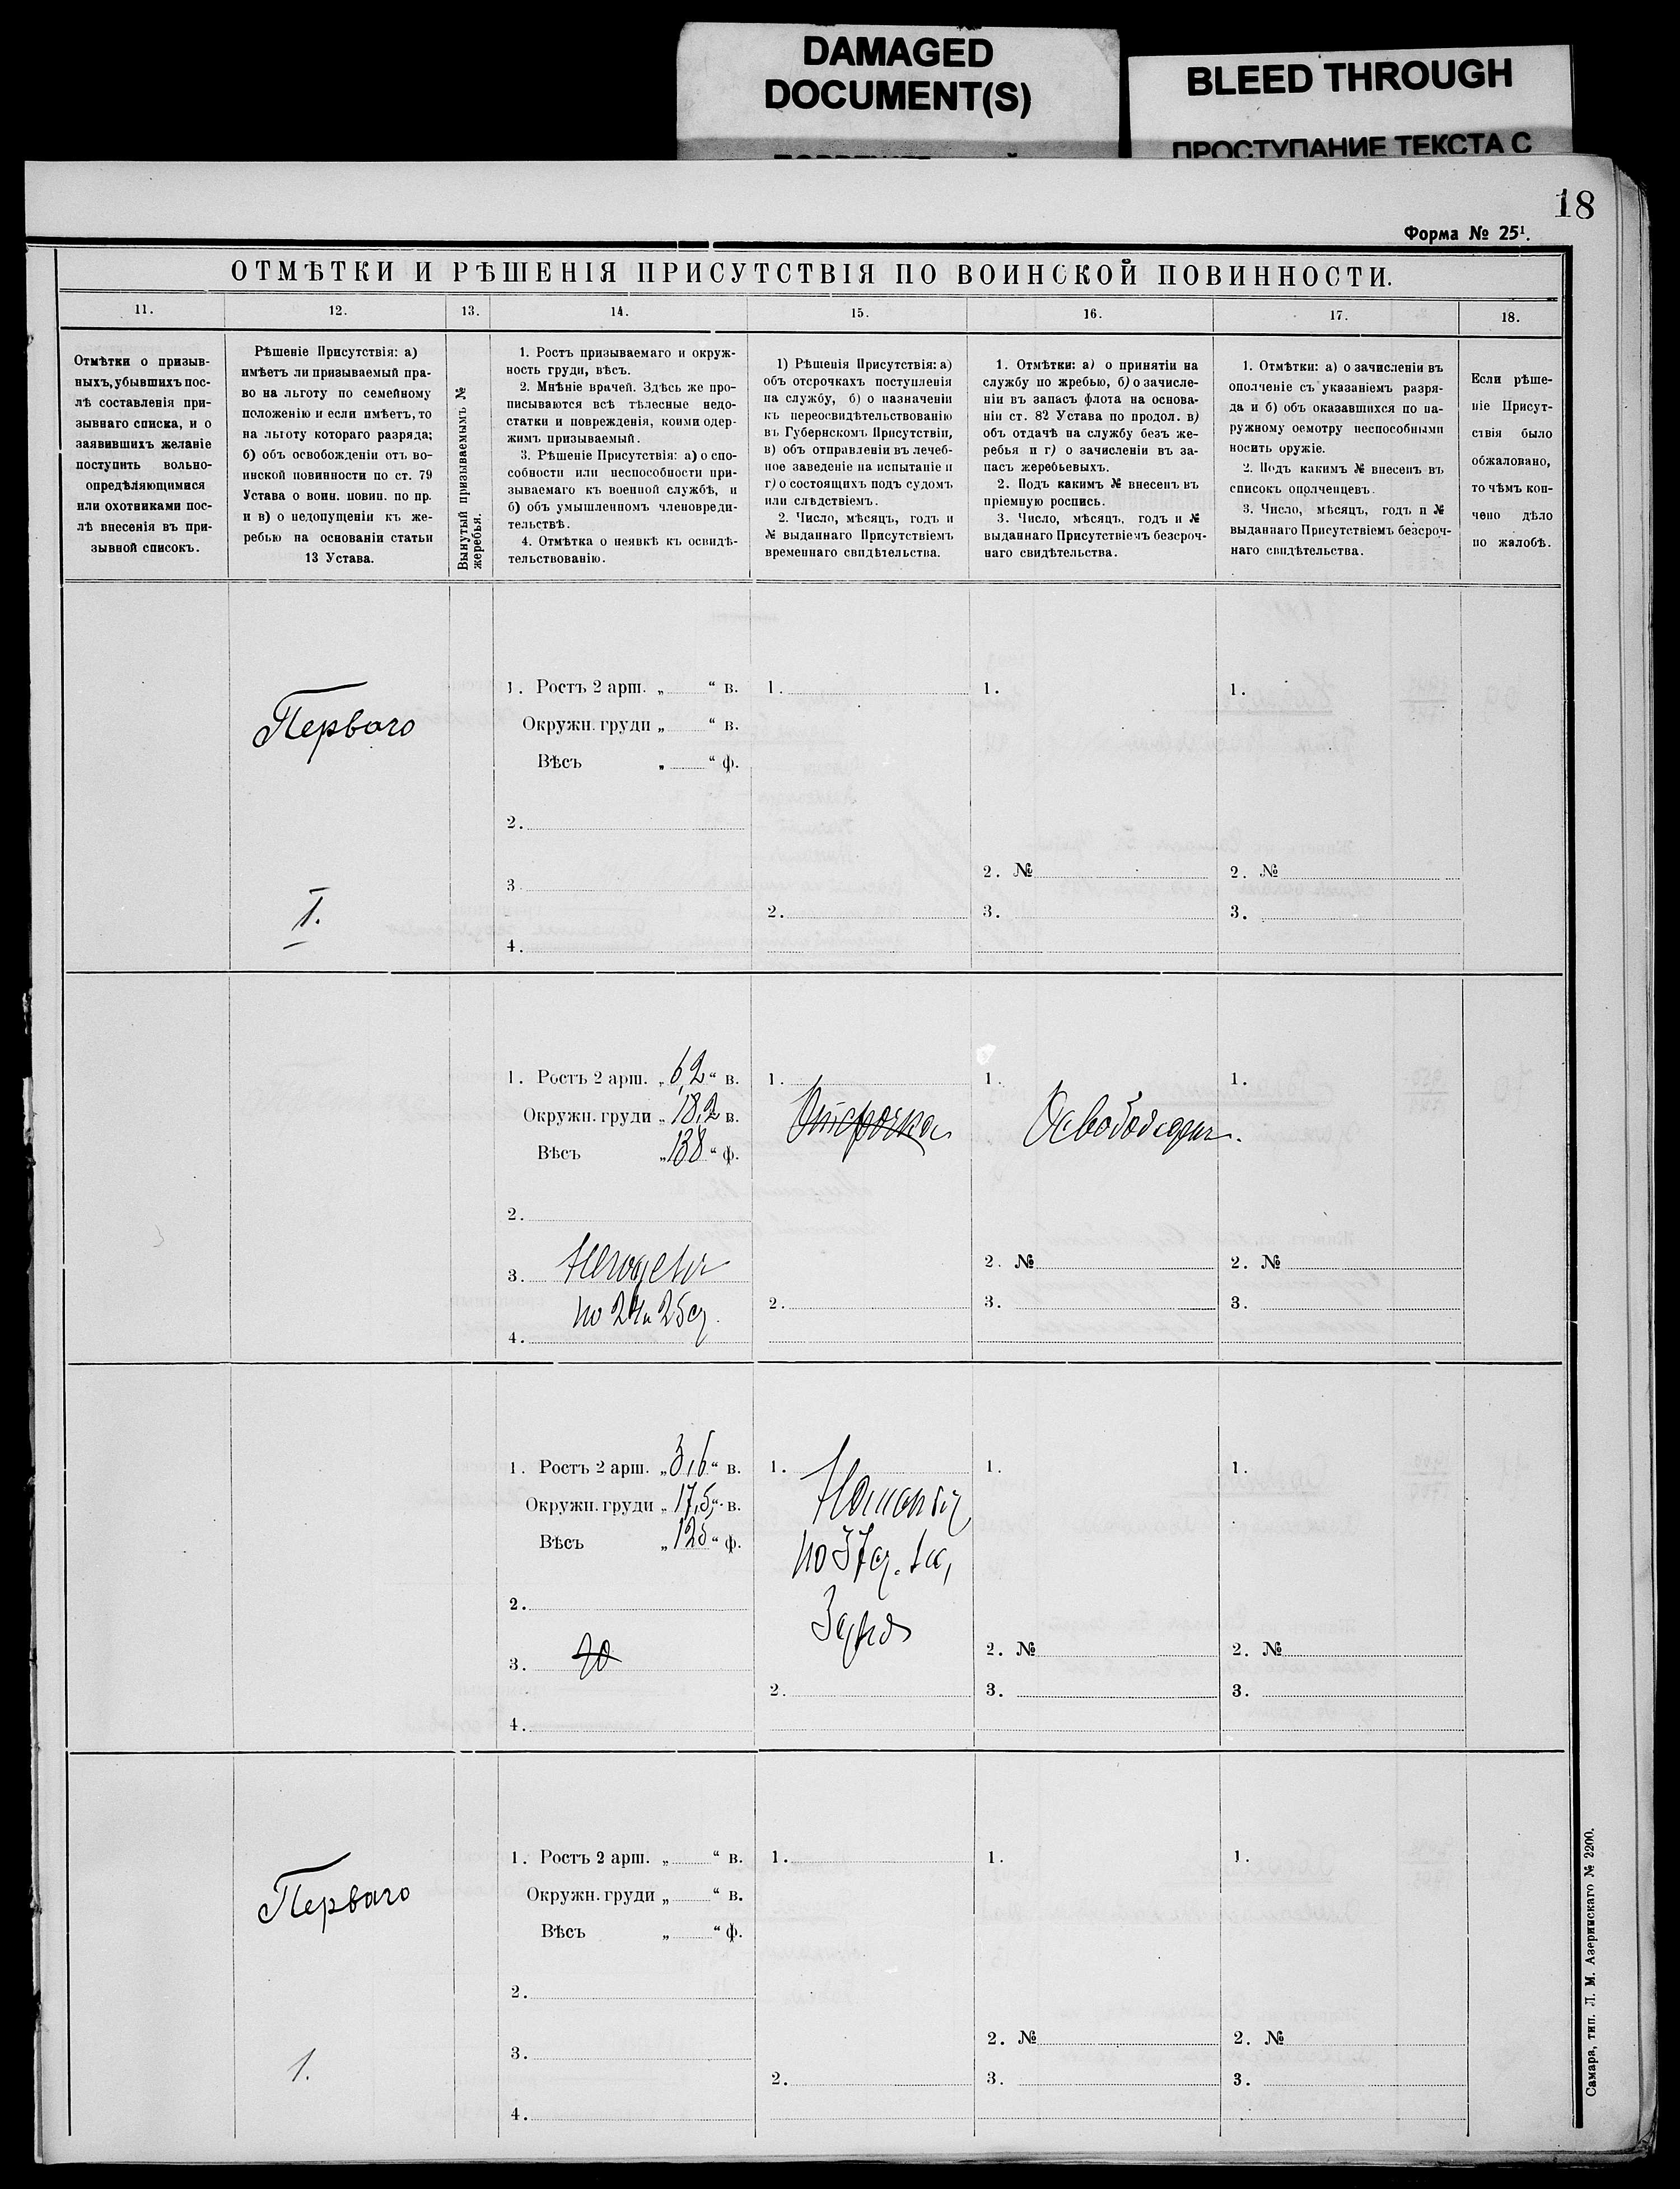 DAMAGED
DOCUMENT(S)
BLEED THROUGH
ПРОСТУПАНИЕ ТЕКСТА С
18
Форма № 25¹.
ОТМѢТКИ И РѢШЕНІЯ ПРИСУТСТВІЯ ПО ВОИНСКОЙ ПОВИННОСТИ.
11.
12.
13.
14.
15.
16.
17.
18.
Отмѣтки о призыв-
ныхъ, убывшихъ пос-
лѣ составленія при-
зывнаго списка, и о
заявившихъ желаніе
поступить вольно-
опредѣляющимися
или охотниками пос-
лѣ внесенія въ при-
зывной списокъ.
Рѣшеніе Присутствія: а)
имѣетъ ли призываемый пра-
во на льготу по семейному
положенію и если имѣетъ, то
на льготу котораго разряда;
б) объ освобожденіи отъ во-
инской повинности по ст. 79
Устава о воин. повин. по пр.
и в) о недопущеніи къ же-
ребью на основаніи статьи
13 Устава.
Вынутый призываемымъ №
жеребья.
1. Ростъ призываемаго и окруж-
ность груди, вѣсъ.
2. Мнѣніе врачей. Здѣсь же про-
писываются всѣ тѣлесные недо-
статки и поврежденія, коими одер-
жимъ призываемый.
3. Рѣшеніе Присутствія: а) о спо-
собности или неспособности при-
зываемаго къ военной службѣ, и
б) объ умышленномъ членовреди-
тельствѣ.
4. Отмѣтка о неявкѣ къ освидѣ-
тельствованію.
1) Рѣшенія Присутствія: а)
объ отсрочкахъ поступленія
на службу, б) о назначеніи
къ переосвидѣтельствованію
въ Губернскомъ Присутствіи,
в) объ отправленіи въ лечеб-
ное заведеніе на испытаніе и
г) о состоящихъ подъ судомъ
или слѣдствіемъ.
2. Число, мѣсяцъ, годъ и
№ выданнаго Присутствіемъ
временнаго свидѣтельства.
1. Отмѣтки: а) о принятіи на
службу по жребью, б) о зачисле-
ніи въ запасъ флота на основа-
ніи ст. 82 Устава по продол. в)
объ отдачѣ на службу безъ же-
ребья и г) о зачисленіи въ за-
пасъ жеребьевыхъ.
2. Подъ какимъ № внесенъ въ
пріемную роспись.
3. Число, мѣсяцъ, годъ и №
выданнаго Присутствіемъ безсроч-
наго свидѣтельства.
1. Отмѣтки: а) о зачисленіи въ
ополченіе съ указаніемъ разря-
да и б) объ оказавшихся по на-
ружному осмотру неспособными
носить оружіе.
2. Подъ какимъ № внесенъ въ
списокъ ополченцевъ.
3. Число, мѣсяцъ, годъ и №
выданнаго Присутствіемъ безсроч-
наго свидѣтельства.
Если рѣше-
ніе Присут-
ствія было
обжаловано,
то чѣмъ кон-
чено дѣло
по жалобѣ.
Перваго
I.
1. Ростъ 2 арш. „ “ в.
Окружн. груди „ “ в.
Вѣсъ „ “ ф.
2.
3
4.
1.
2.
1.
2. №
3.
1.
2. №
3.
1. Ростъ 2 арш. „ 6,2 “ в.
Окружн. груди „ 18,2 в.
Вѣсъ „ 138 “ ф.
2.
3. Негоденъ
по 24 и 25 ст.
4.
1.
Отсрочка
2.
1.
Освобожденъ.
2. №
3.
1.
2. №
3.
1. Ростъ 2 арш. „ 3,6 “ в.
Окружн. груди „ 17,5 “ в.
Вѣсъ „ 125 “ ф.
2.
3.
4.
1.
по 37 ст.
2.
1.
2. №
3.
1.
2. №
3.
Перваго
1.
1. Ростъ 2 арш. „ “ в.
Окружн. груди „ “ в.
Вѣсъ „ “ ф.
2.
3.
4.
1.
2.
1.
2. №
3.
1.
2. №
3.
Самара, тип. Л. М. Азеринскаго № 2200.